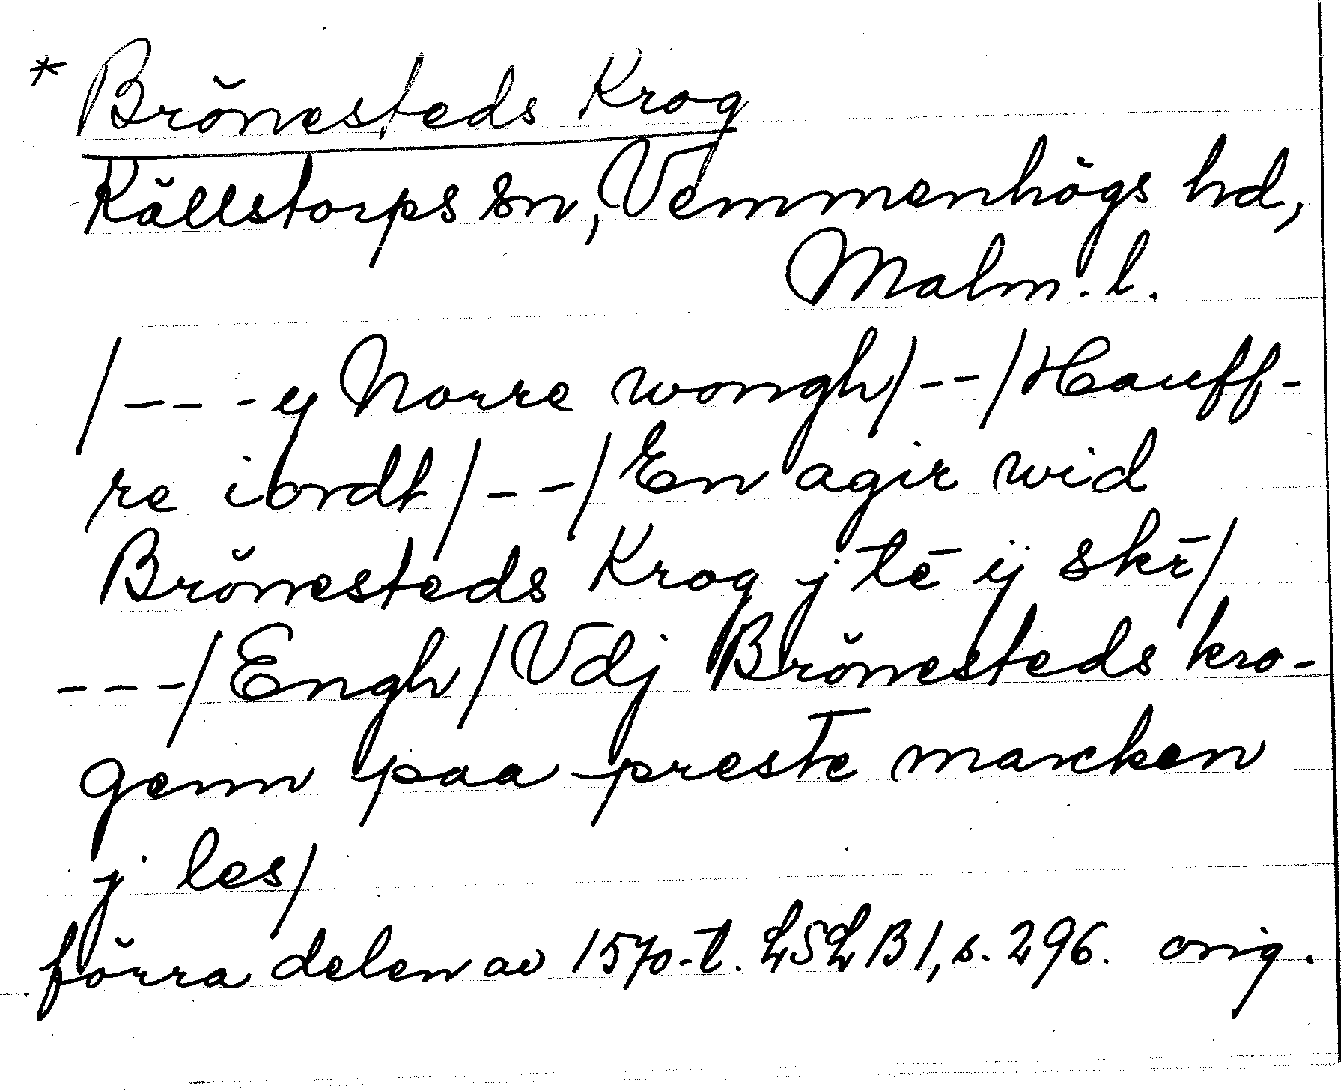 * Brönesteds Krog
Källstorps sn, Vemmenhögs hd,
Malm. l.
/--- y Norre wongh/--/Hauff-
re iordt/--/En agir wid
Brönesteds Krog j tē ij skē/
---/Engh/Vdj Brönesteds kro-
genn paa prestē marcken
j les/
förra delen av 1570-t. LSLB 1, s. 296. orig.